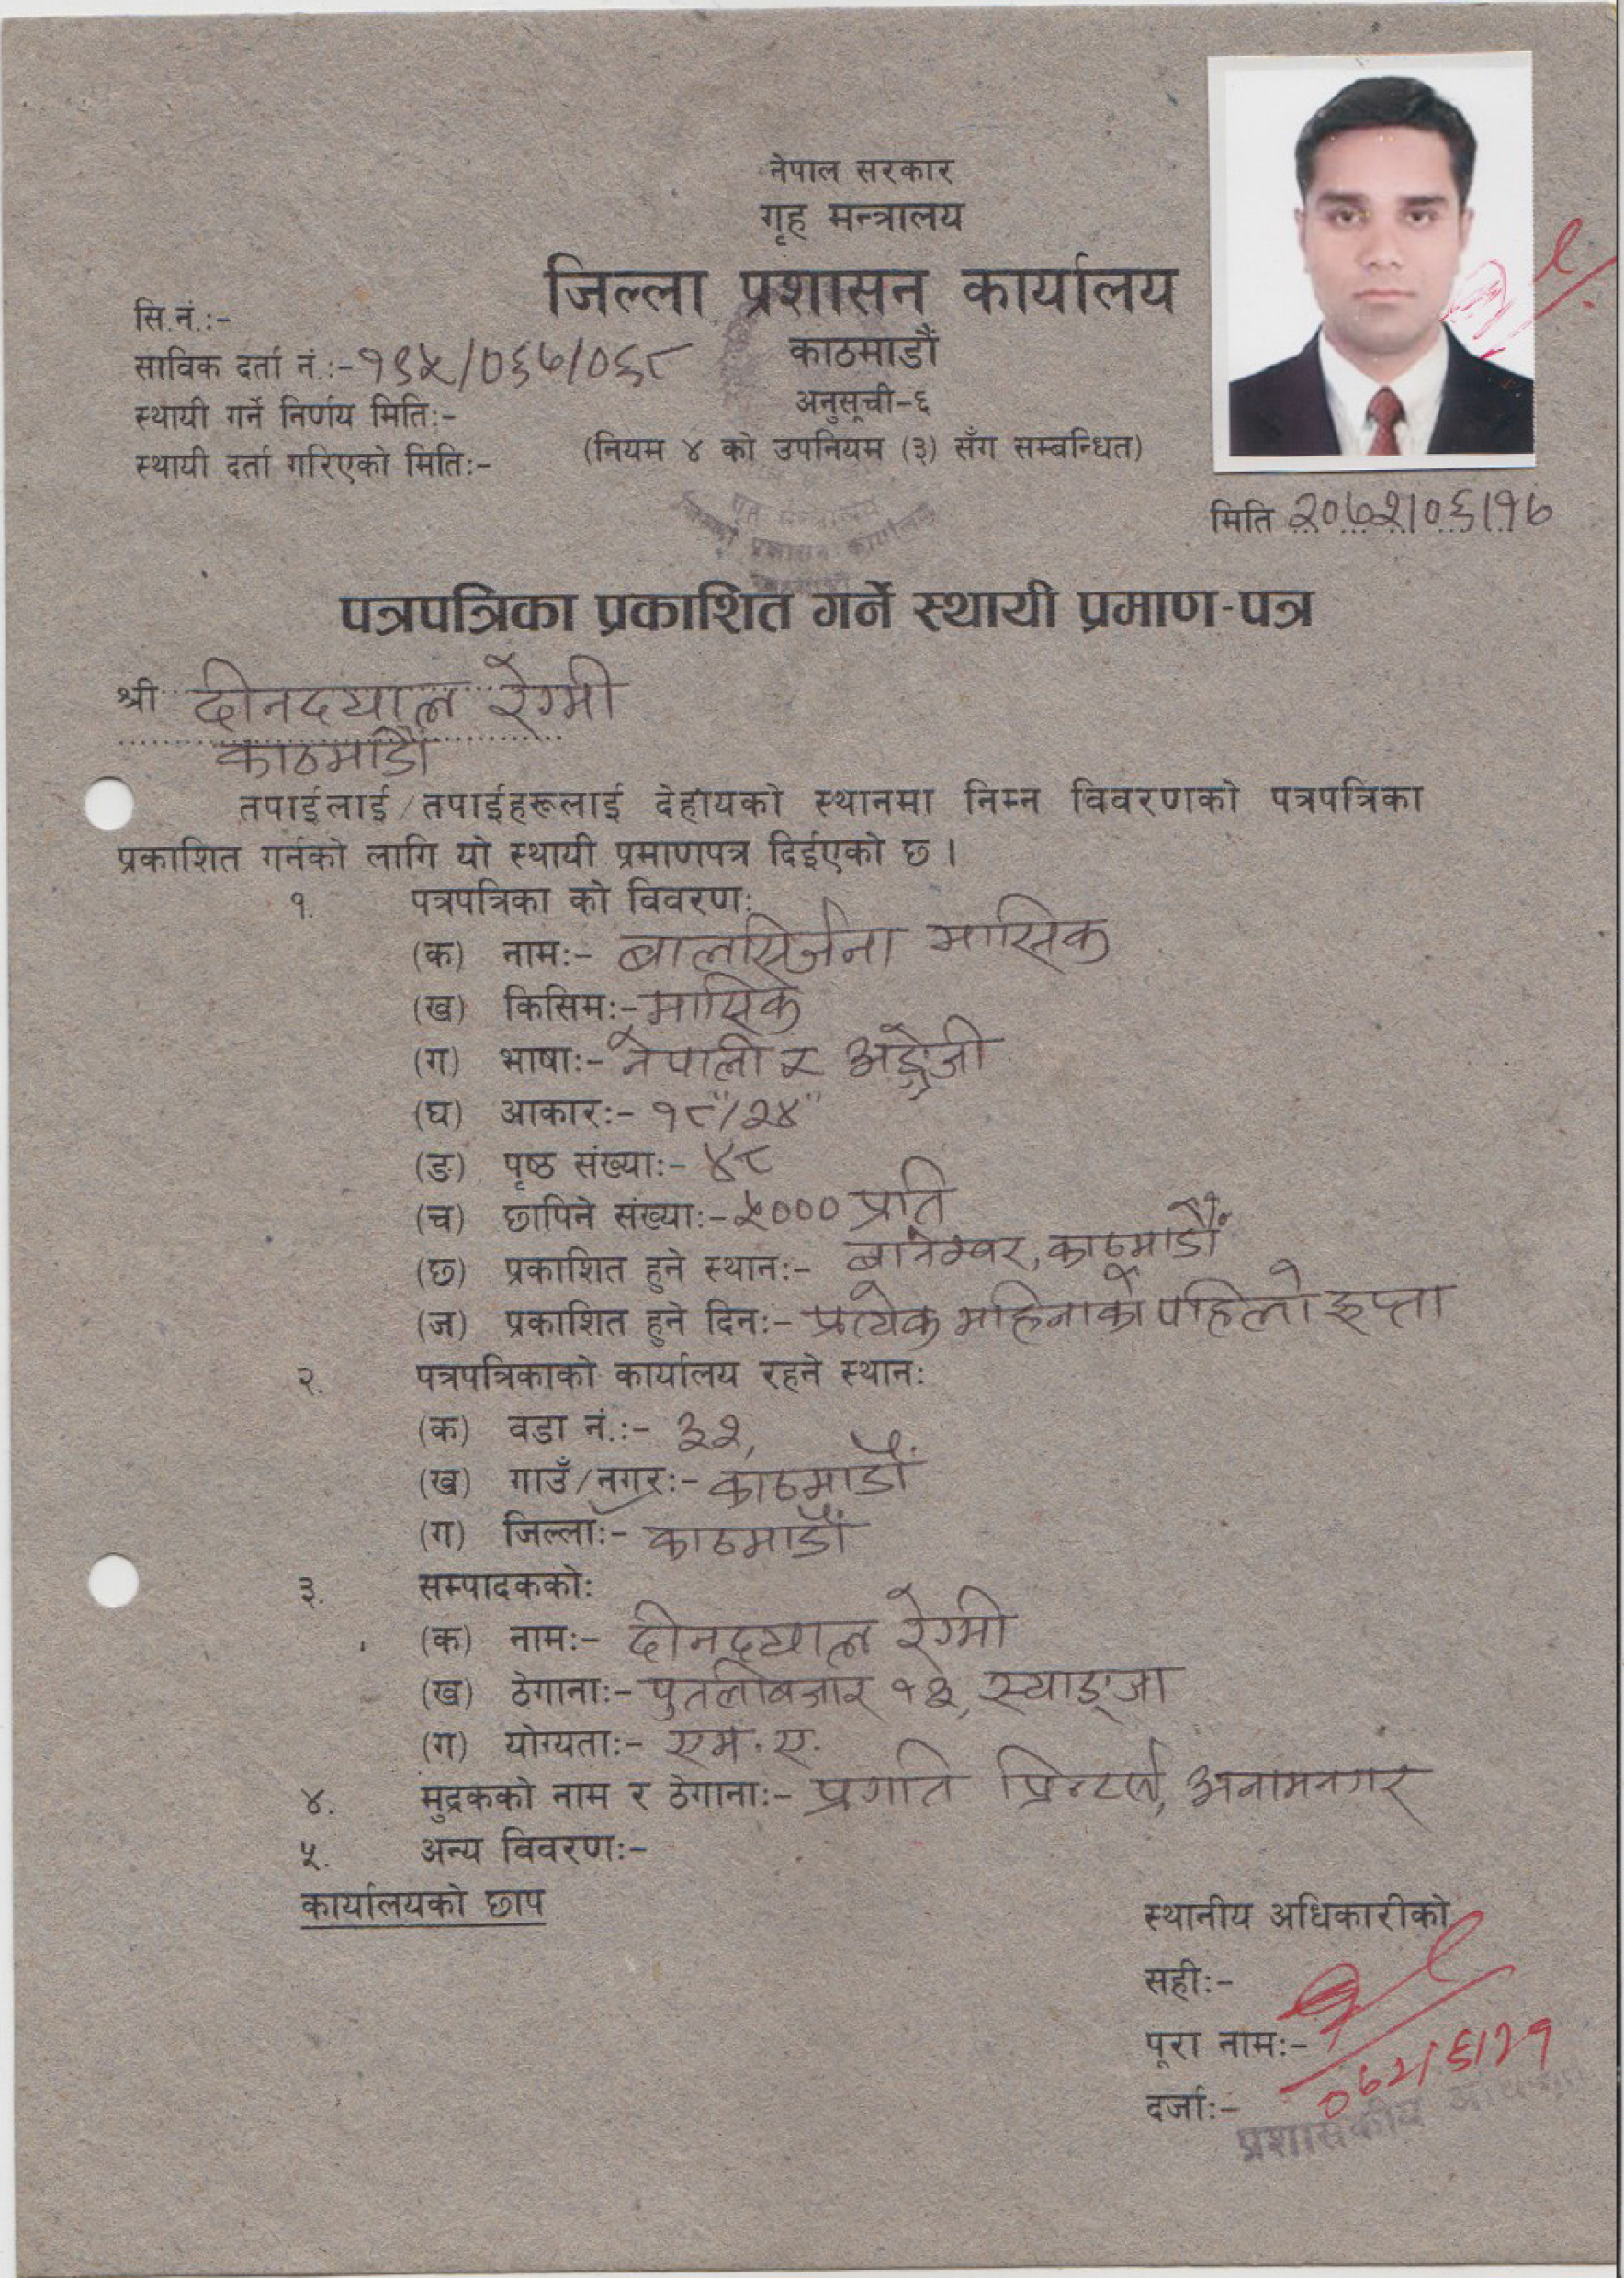 नेपाल सरकार
गृह मन्त्रालय
जिल्ला प्रशासन कार्यालय
काठमाडौं
अनुसूची-६
(नियम ४ को उपनियम (३) सँग सम्बन्धित)
सि.नं.:-
साविक दर्ता नं.:- १९५/०६७/०६८
स्थायी गर्ने निर्णय मिति:-
स्थायी दर्ता गरिएको मिति:-
मिति २०७२।०६।१७
प्रशासन कार्यालय
पत्रपत्रिका प्रकाशित गर्ने स्थायी प्रमाण-पत्र
श्री दीनदयाल रेग्मी
काठमाडौं
तपाईलाई/तपाईहरूलाई देहायको स्थानमा निम्न विवरणको पत्रपत्रिका
प्रकाशित गर्नको लागि यो स्थायी प्रमाणपत्र दिईएको छ ।
१. पत्रपत्रिका को विवरण:
(क) नाम:- बालसिर्जना मासिक
(ख) किसिम:- मासिक
(ग) भाषा:- नेपाली र अङ्ग्रेजी
(घ) आकार:- १८"/२४"
(ङ) पृष्ठ संख्या:- ४८
(च) छापिने संख्या:- ५००० प्रति
(छ) प्रकाशित हुने स्थान:- बानेश्वर, काठमाडौं
(ज) प्रकाशित हुने दिन:- प्रत्येक महिनाको पहिलो हप्ता
२. पत्रपत्रिकाको कार्यालय रहने स्थान:
(क) वडा नं.:- ३२,
(ख) गाउँ/नगर:- काठमाडौं
(ग) जिल्ला:- काठमाडौं
३. सम्पादकको:
(क) नाम:- दीनदयाल रेग्मी
(ख) ठेगाना:- पुतलीबजार १३, स्याङ्जा
(ग) योग्यता:- एम.ए.
४. मुद्रकको नाम र ठेगाना:- प्रगति प्रिन्टर्स, अनामनगर
५. अन्य विवरण:-
कार्यालयको छाप
स्थानीय अधिकारीको
सही:-
पूरा नाम:-
०७२।६।२१
दर्जा:-
प्रशासकीय अधिकृत